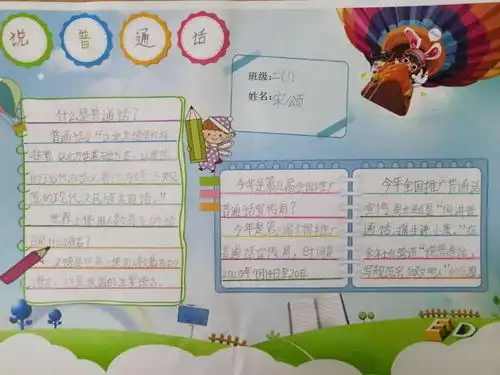 说普通话
班级:二(1)
姓名:宋颂
什么是普通话?
普通话是"以北京语音为标准
音,以北方话为基础方言,以典范
的现代白话文著作为语法规
范的现代汉民族共同语。"
世界上使用人数最多的语
汉语是世界上使用人数最多的
语言,也是我国的主要语言。
今年是第几届全国推广
普通话宣传周?
今年是第
届全国推广
普通话宣传周,时间是
2020年9月14日至20日。
今年全国推广普通话
宣传周主题是"同讲普
通话,携手进小康。"在
全社会营造"说普通话,
写规范字,做文明人"的氛围
ED